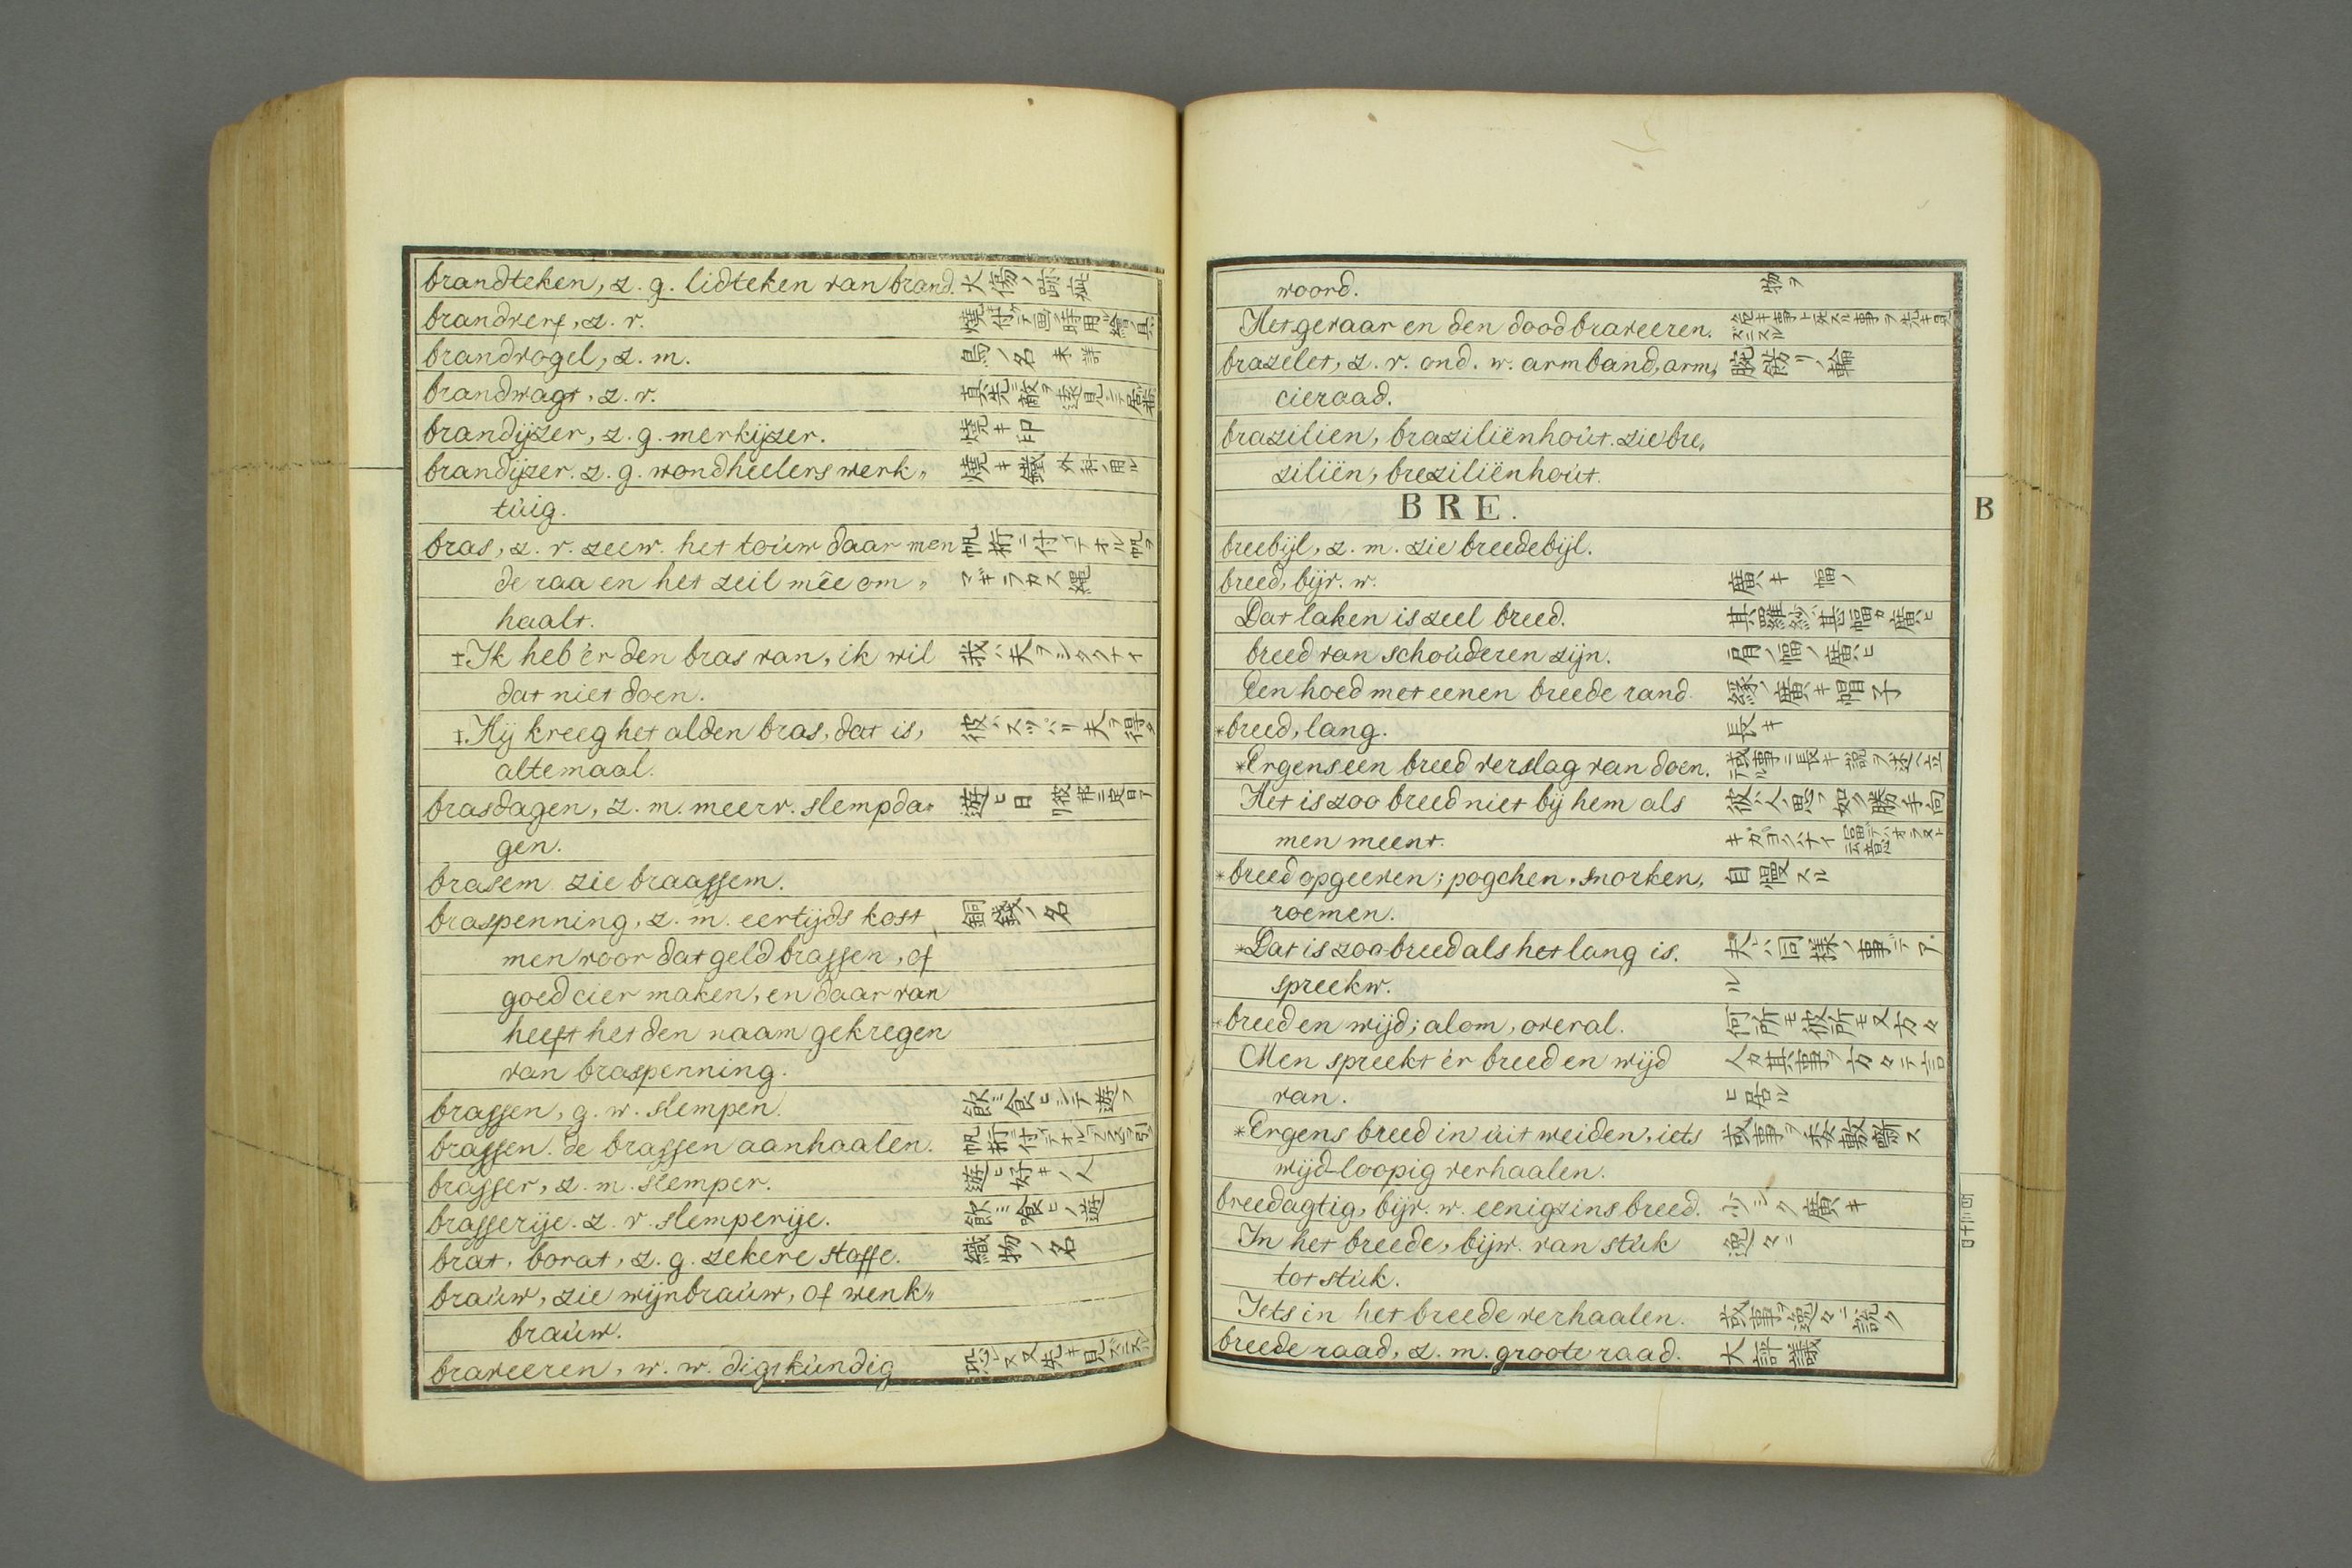 brandteken, z. g. lidteken van brand. 火傷ノ跡疵
brandverf, z. v.
brandvogel, z. m. 鳥ノ名 未詳
brandwagt, z. v.
brandijzer, z. g. merkijzer. 焼キ印
brandijzer. z. g. wondheelers werk„ 焼キ鐵 外科ノ用ル
tùig.
bras, z. v. zeew. het toùw daar men 帆桁ニ付イテオル帆ヲ
de raa en het zeil mêe om„ マギラカス縄
haalt.
‡Ik heb 'er den bras van, ik wil 我ハ夫ヲシタクナイ
dat niet doen.
‡.Hij kreeg het al den bras, dat is, 彼ハスツパリ夫ヲ得タ
altemaal.
brasdagen, z. m. meerv. slempda„ 遊ヒ日
gen.
brasem zie braassem.
braspenning, z. m. eertijds kost 銅錢ノ名
men voor dat geld brassen, of
goed cier maken, en daar van
heeft het den naam gekregen
van braspenning.
brassen, g. w. slempen. 飲ミ食ヒシテ遊フ
brassen. de brassen aanhaalen. 帆桁ニ付イテオル
brasser, z. m. slemper. 遊ヒ好キノ人
brasserije. z. v. slemperije. 飲ミ喰ヒノ遊
brat, borat, z. g. zekere stoffe. 織物ノ名
braùw, zie wijnbraùw, of wenk„
braùw.
braveeren, w. w. digtkùndig
woord. 物ヲ
Het gevaar en den dood braveeren.
brazelet, z. v. ond. w. armband, arm„ 腕餝リノ輪
cieraad.
brazilien, braziliënhoùt. zie bre„
ziliën, breziliënhoùt.
BRE.
B
breebijl, z. m. zie breedebijl.
breed, bijv. w.廣キ 幅ノ
Dat laken is zeel breed. 其羅紗ハ甚幅カ廣ヒ
breed van schoùderen zijn. 肩ノ幅ノ廣ヒ
Een hoed met eenen breede rand. 縁ノ廣キ帽子
*breed, lang. 長キ
*Ergens een breed verslag van doen.
Het is zoo breed niet bij hem als 彼ハ人ノ思フ如ク勝手向
men meent. キガヨクハナイ
*breed opgeeven; pogchen, snorken, 自慢スル
roemen.
*Dat is zoo breed als het lang is. 夫ハ同様ノ事デア
spreekw. ル
*breed en wijd; alom, overal. 何所モ彼所モ又方々
Men spreekt ér breed en wijd 人々其事ヲ方々テ言
van. ヒ居ル
*Ergens breed in ùit weiden, iets 或事ヲ委敷噺ス
wijd-loopig verhaalen.
breedagtig, bijv. w. eenigzins breed. 少シク廣キ
In het breede, bijw. van stùk 逸々ニ
tot stùk.
Iets in het breede verhaalen. 或事ヲ逸々ニ説ク
breede raad, z. m. groote raad. 大評議